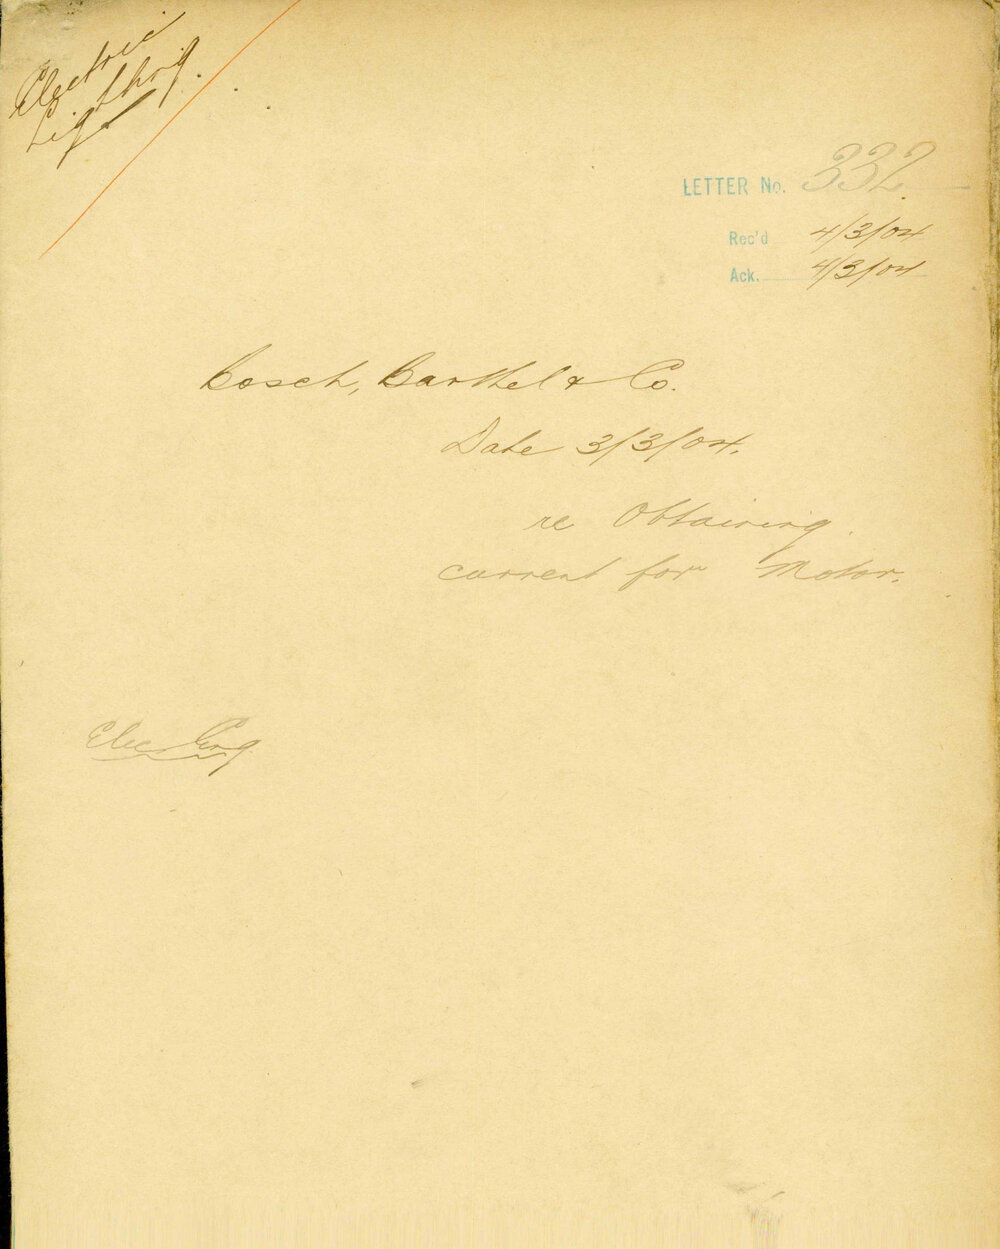 Electric
Lighting.
LETTER No. 332
Rec'd 4/3/04
Ack. 4/3/04
Bosch, Barthel & Co.
Date 3/3/04.
re Obtaining
current for Motor.
Elec Eng.